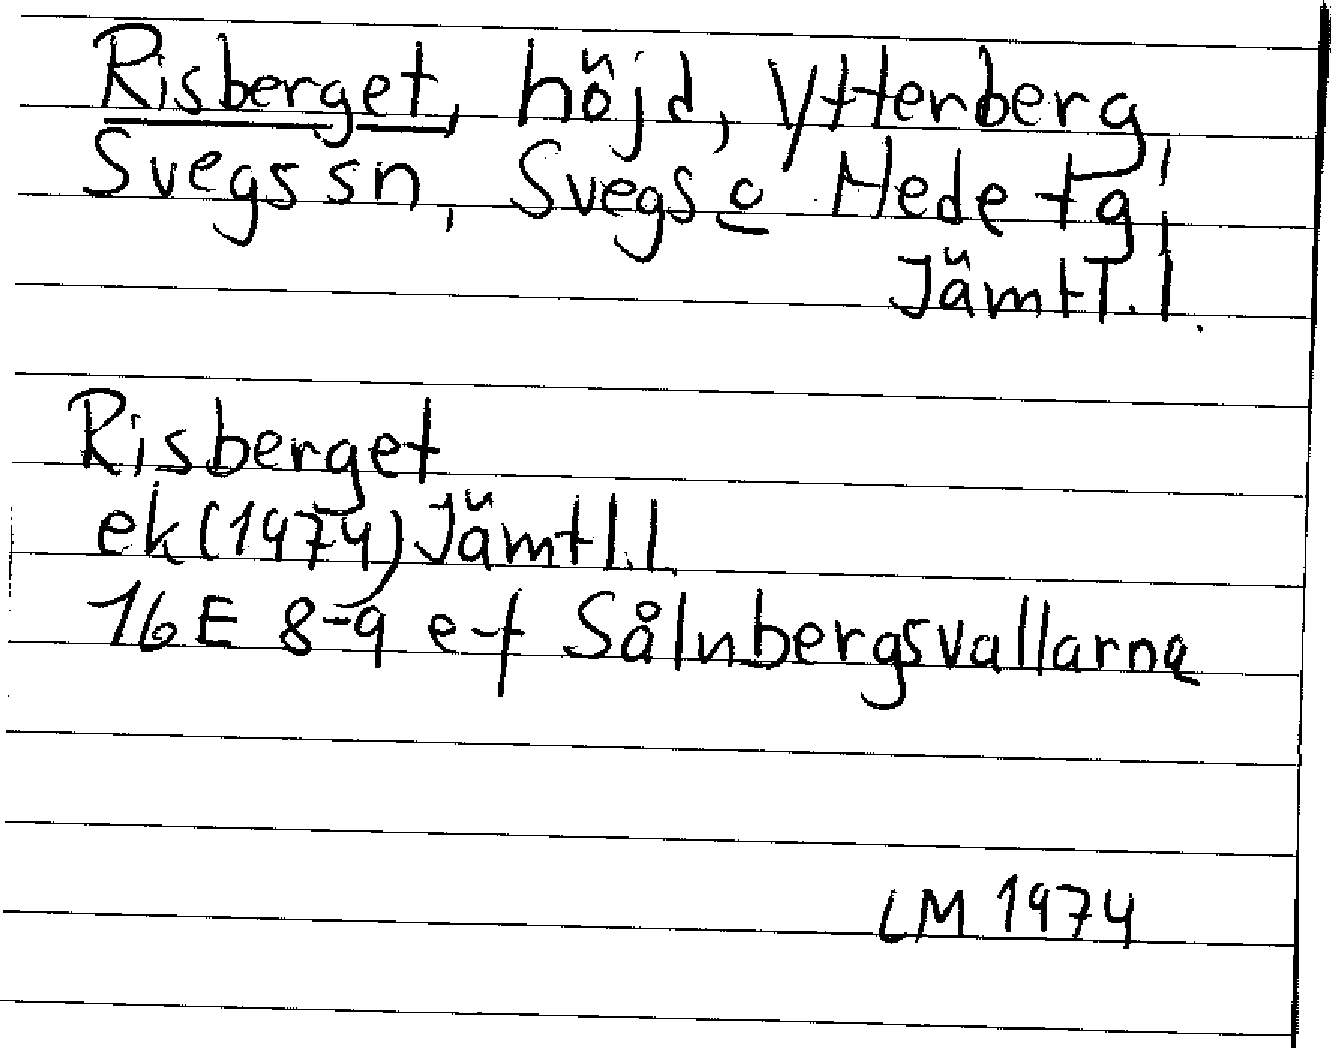 Risberget, höjd, Ytterberg,
Svegs sn, Svegs o Hede tg,
Jämtl. l.
Risberget
ek (1974) Jämtl. l.
16E 8-9 e-f Sålnbergsvallarna
LM 1974